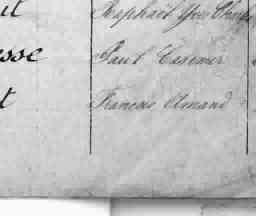 Raphael
esse Paul Casimir
t Francois Amand